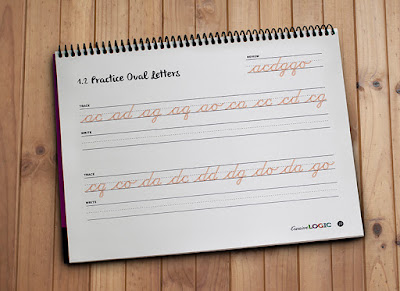 REVIEW
1.2 Practice Oval Letters
acdgqo
TRACE
ac ad ag aq ao ca cc cd cg
WRITE
TRACE
cq co da dc dd dg do da go
WRITE
Cursive LOGIC